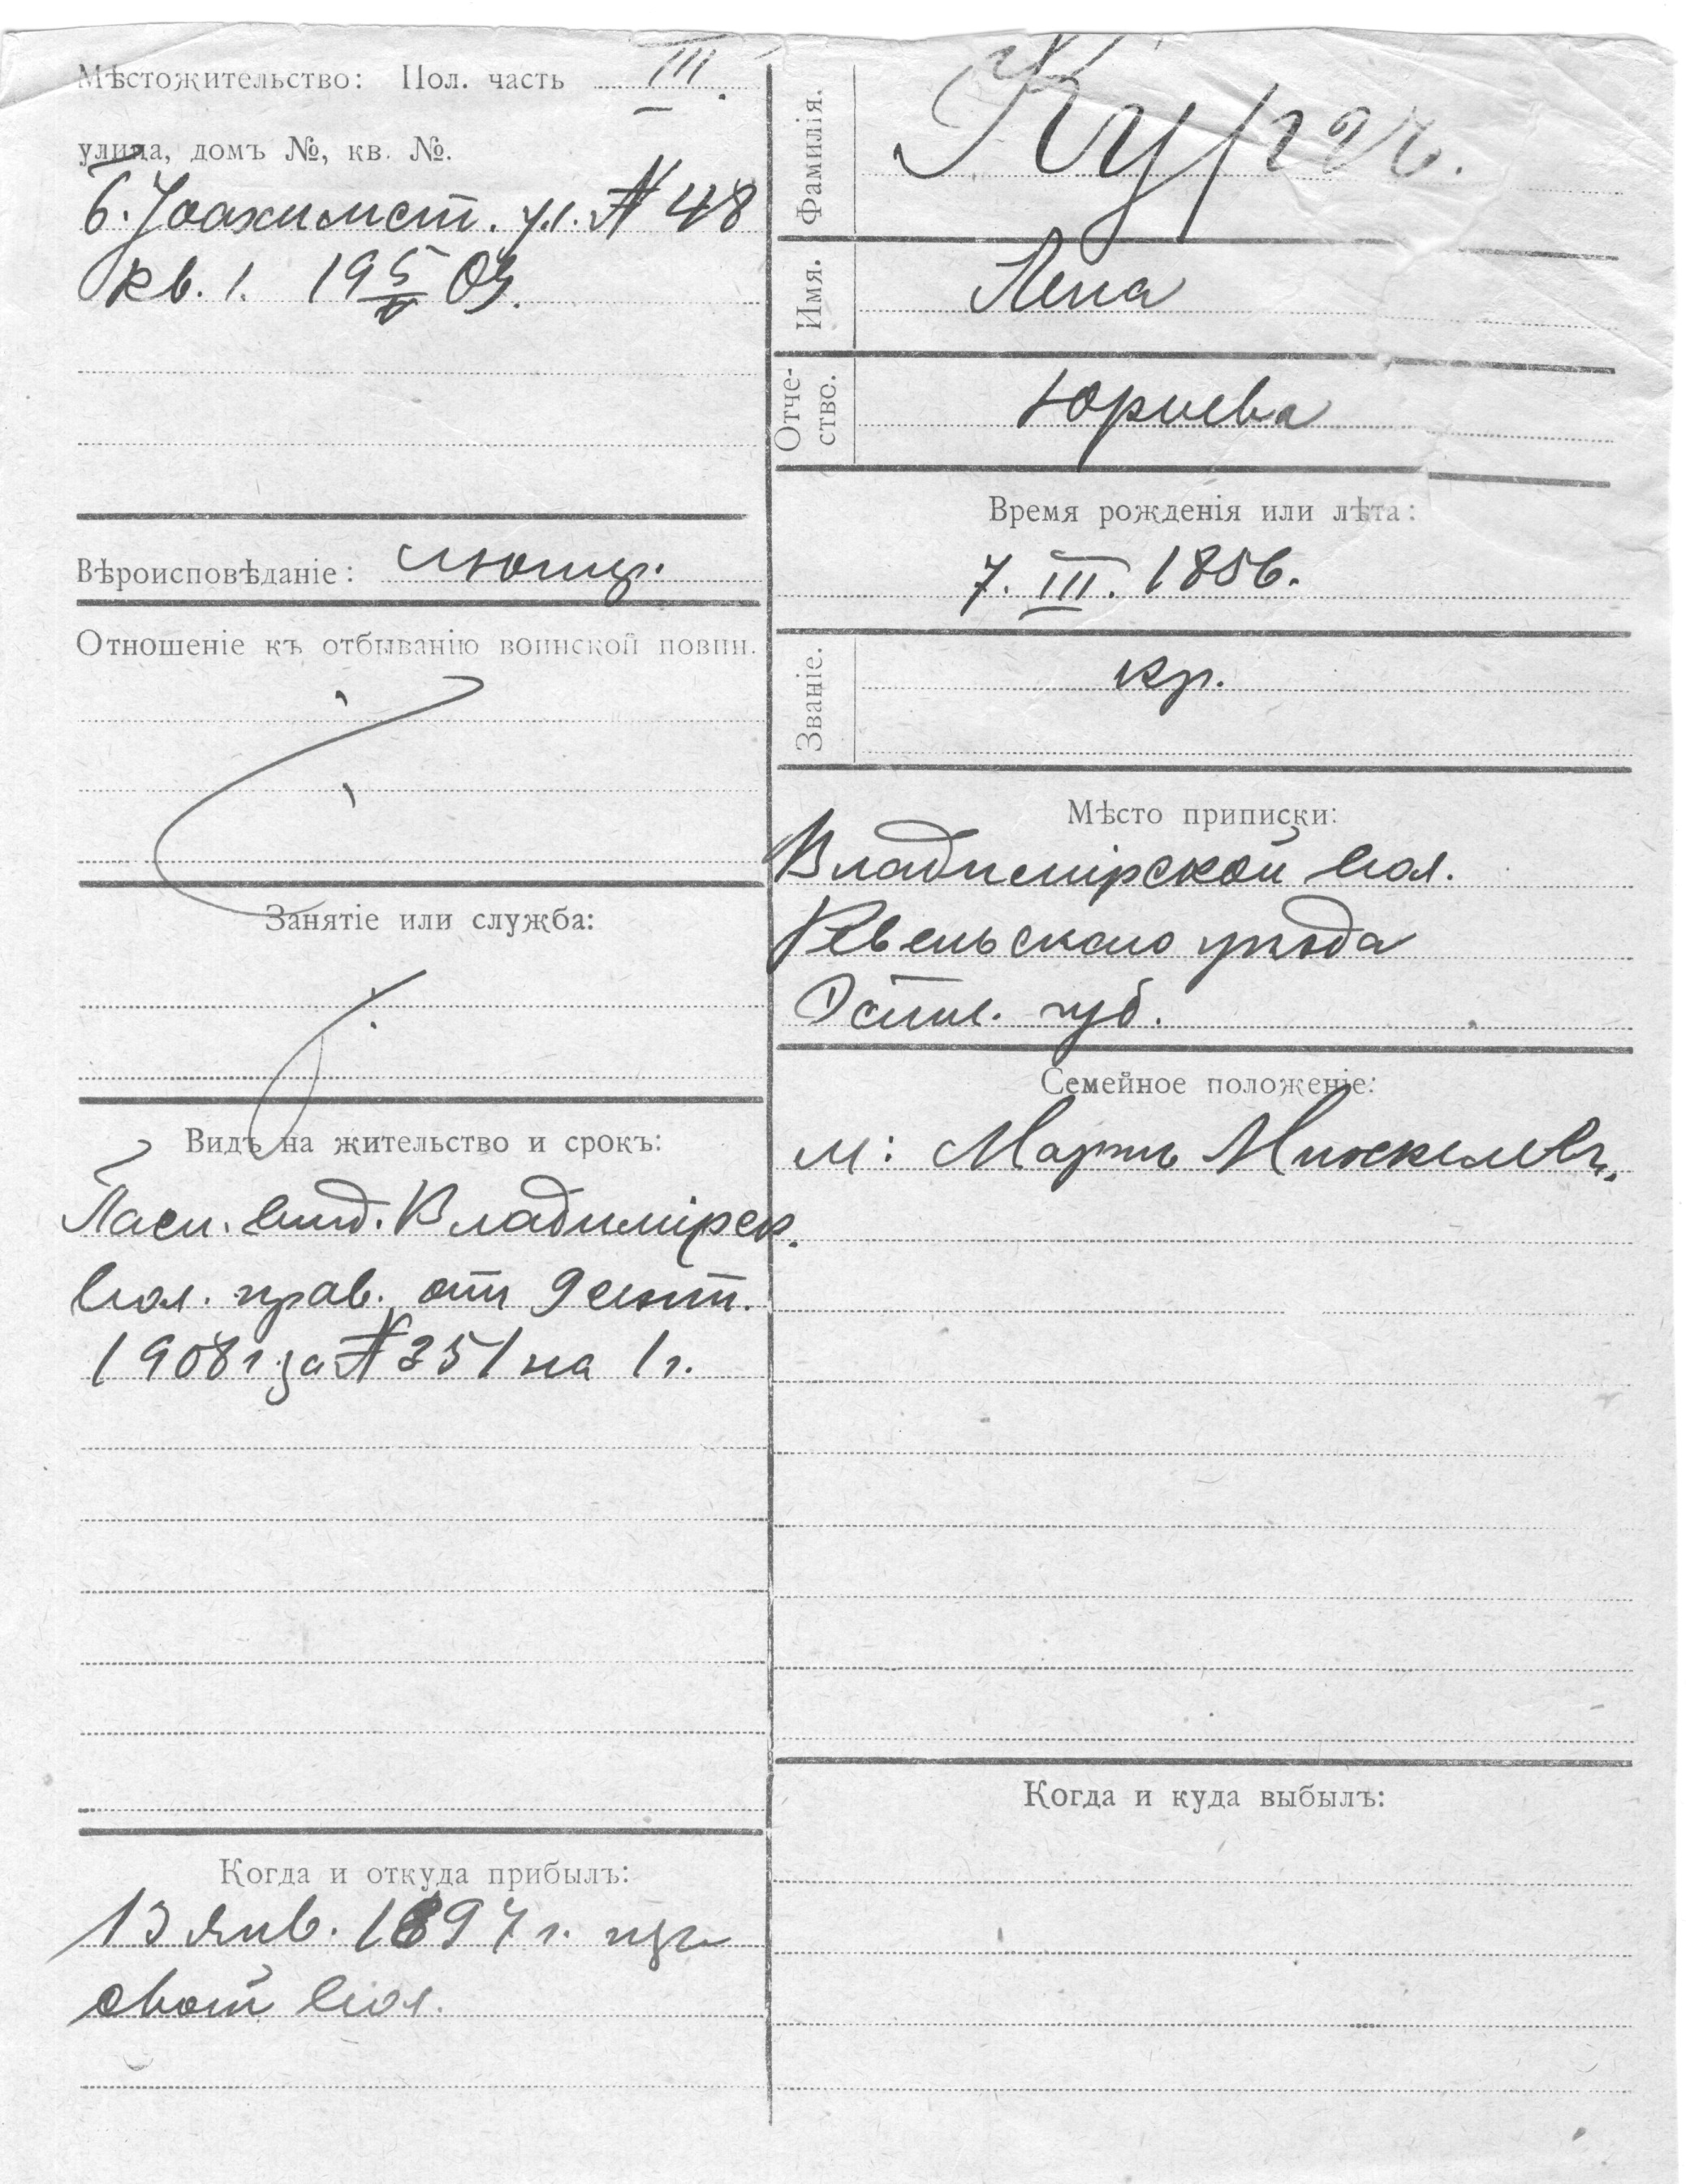 Мѣстожительство: Пол. часть III.
улица, домъ №, кв. №.
Б. Іоахимст. ул. № 48
кв. 1. 19 5/V 09.
Вѣроисповѣданіе: лютер.
Отношеніе къ отбыванію воинской повин.
Занятіе или служба:
Видъ на жительство и срокъ:
Пасп. выд. Владимірск.
вол. прав. отъ 9 сент.
1908 г. за № 351 на 1 г.
Когда и откуда прибылъ:
13 Янв. 1897 г. изъ
своей вол.
Фамилія.
Имя. Лена
Отче-
ство. Юриева
Время рожденія или лѣта:
7. III. 1856.
Званіе. кр.
Мѣсто приписки:
Владимірской вол.
Ревельскаго уѣзда
Эстл. губ.
Семейное положеніе:
м: Мартъ Михкелевъ.
Когда и куда выбылъ: